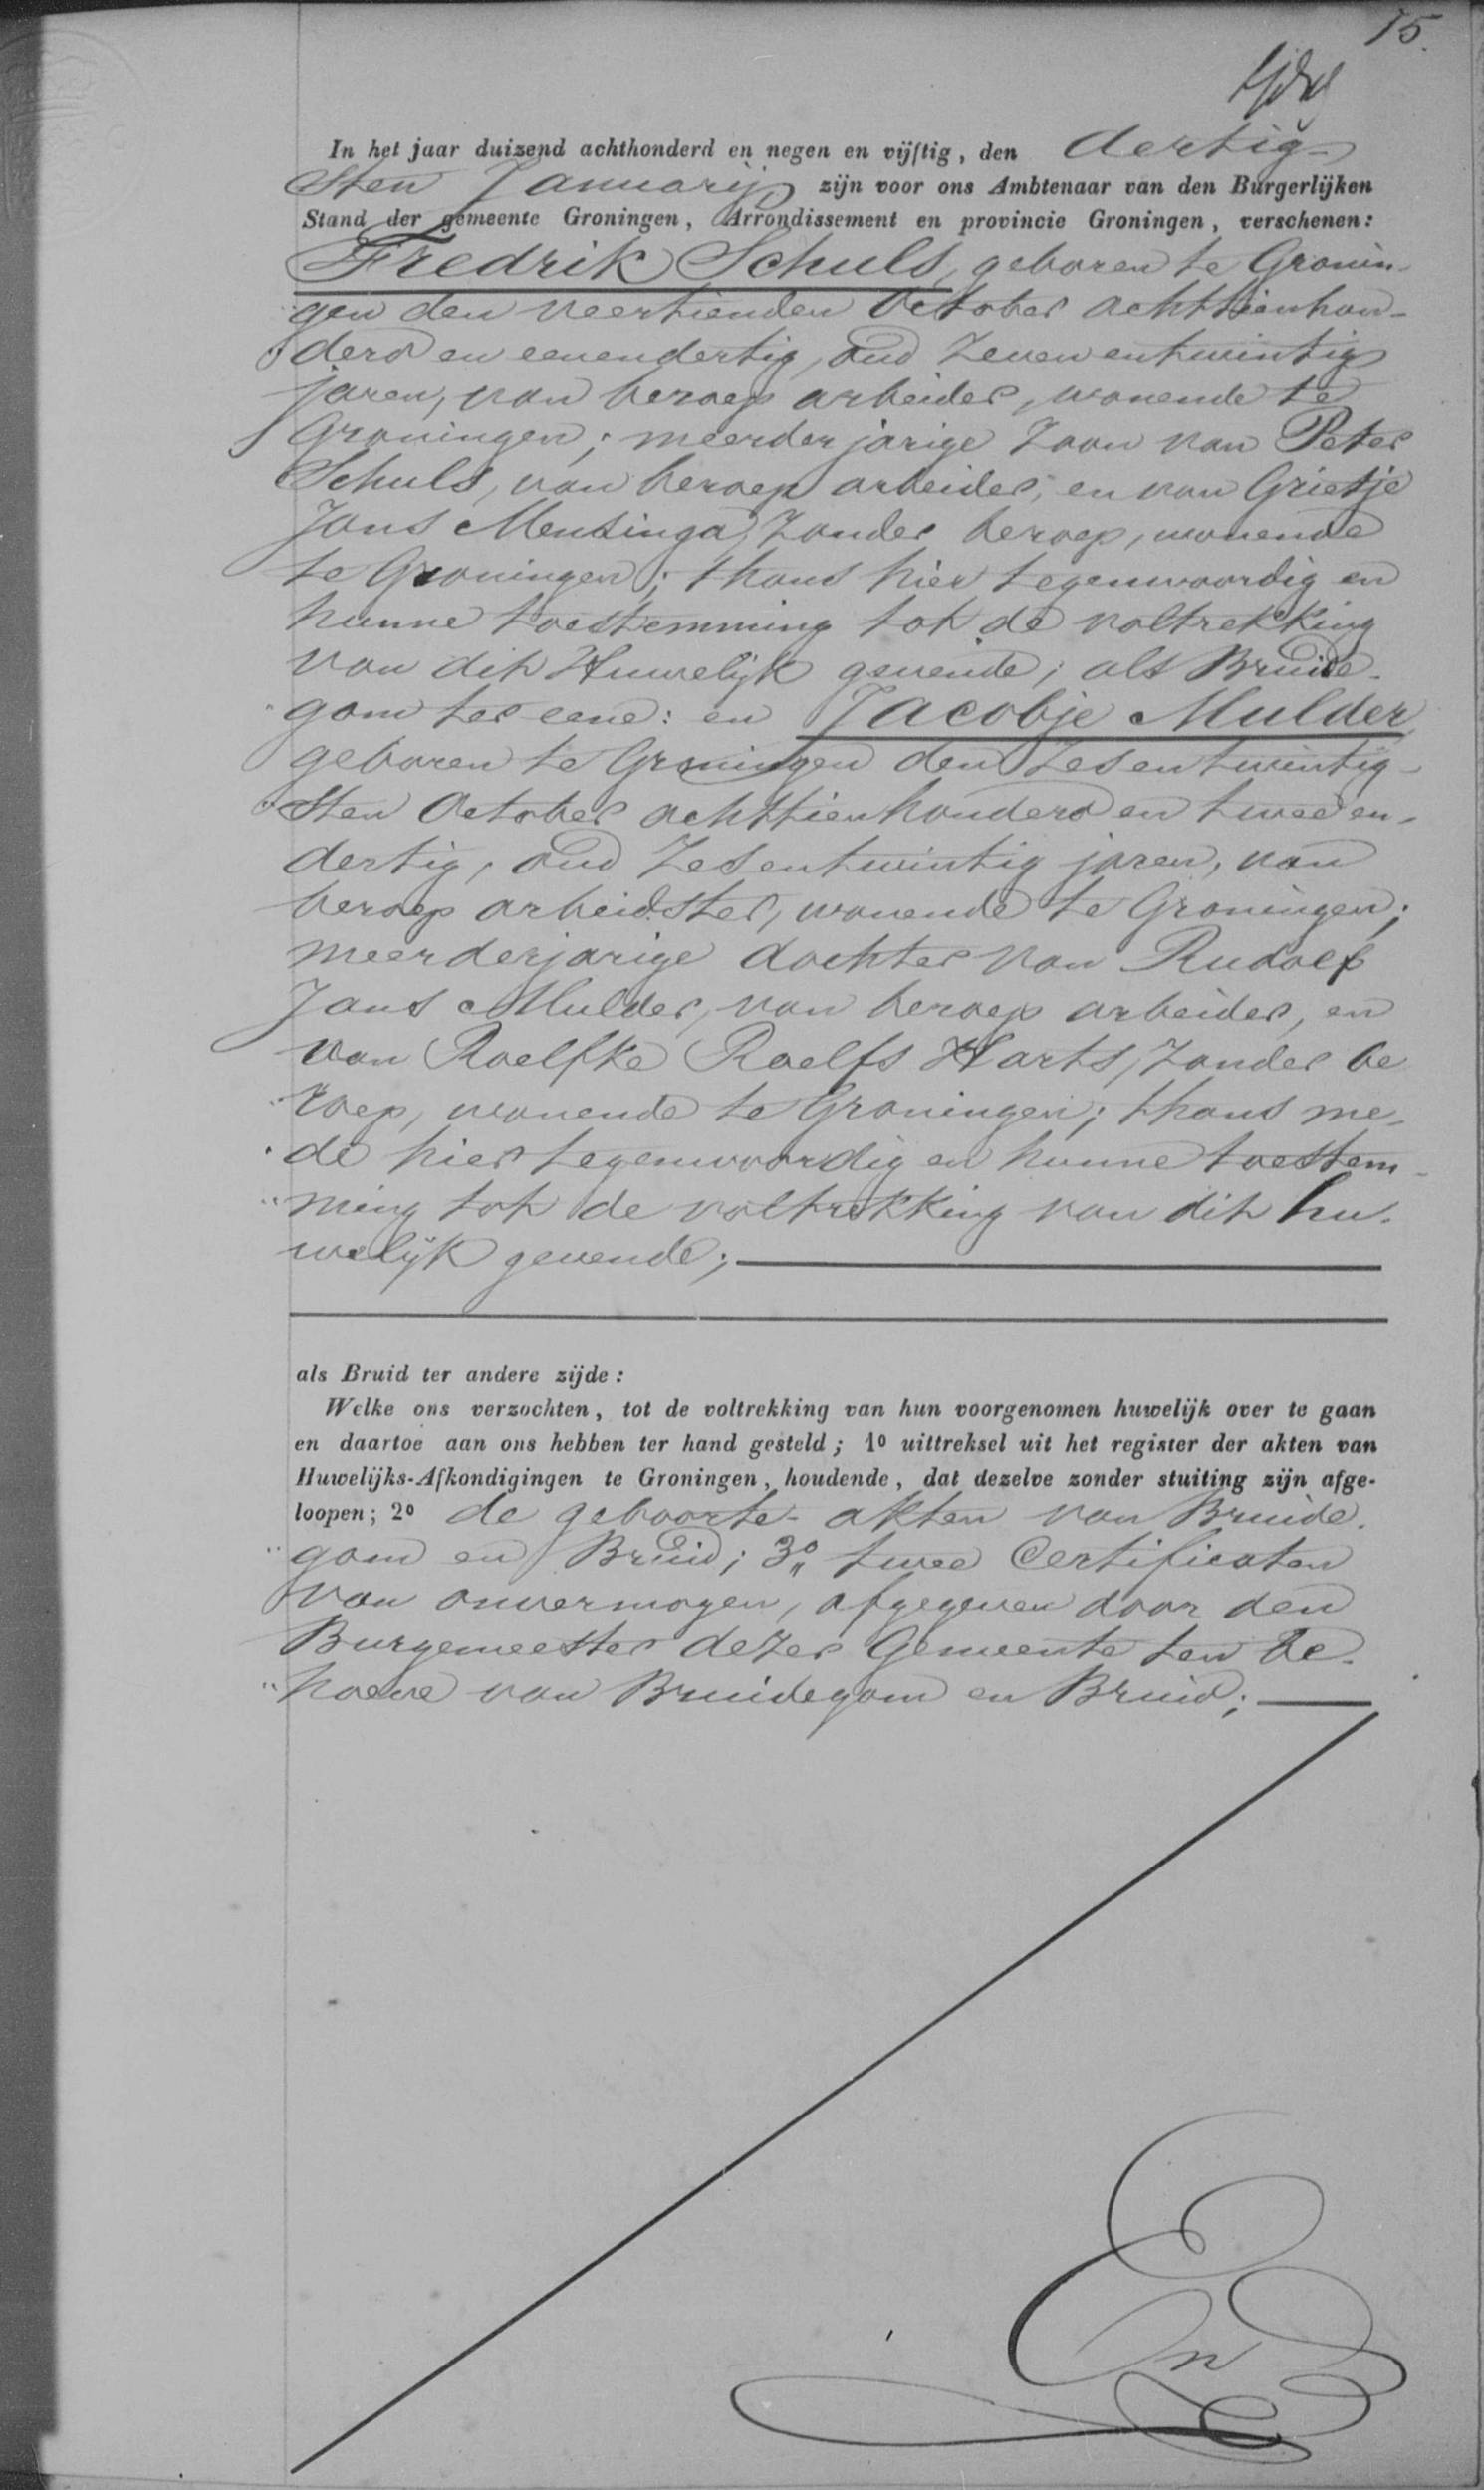 15.
In het jaar duizend achthonderd en negen en vijftig, den dertig-
sten Januarij zijn voor ons Ambtenaar van den Burgerlijken
Stand der gemeente Groningen, Arrondissement en provincie Groningen, verschenen:
Fredrik Schuls, geboren te Gronin-
gen den veertienden October achttienhon-
derd en eenendertig, oud zeven entwintig
jaren, van beroep arbeider, wonende te
Groningen; meerderjarige zoon van Peter
Schuls, van beroep arbeider, en van Grietje
Jans Mensinga, zonder beroep, wonende
te Groningen; thans hier tegenwoordig en
hunne toestemming tot de voltrekking
van dit Huwelijk gevende; als Bruide-
gom ter eene: en Jacobje Mulder,
geboren te Groningen den zesentwintig-
sten October achttienhonderd en twee en-
dertig, oud zesentwintig jaren, van
beroep arbeidster, wonende te Groningen;
meerderjarige dochter van Rudolf
Jans Mulder, van beroep arbeider, en
van Roelfke Roelfs Harts, zonder be
roep, wonende te Groningen; thans me-
de hier tegenwoordig en hunne toestem-
ming tot de voltrekking van dit hu-
welijk gevende;
als Bruid ter andere zijde:
Welke ons verzochten, tot de voltrekking van hun voorgenomen huwelijk over te gaan
en daartoe aan ons hebben ter hand gesteld; 1º uittreksel uit het register der akten van
Huwelijks-Afkondigingen te Groningen, houdende, dat dezelve zonder stuiting zijn afge-
loopen; 2º de geboorte-akten van Bruide-
gom en Bruid; 3º twee Certificaten
van onvermogen, afgegeven door den
Burgemeester dezer Gemeente ten be-
hoeve van Bruidegom en Bruid;
En